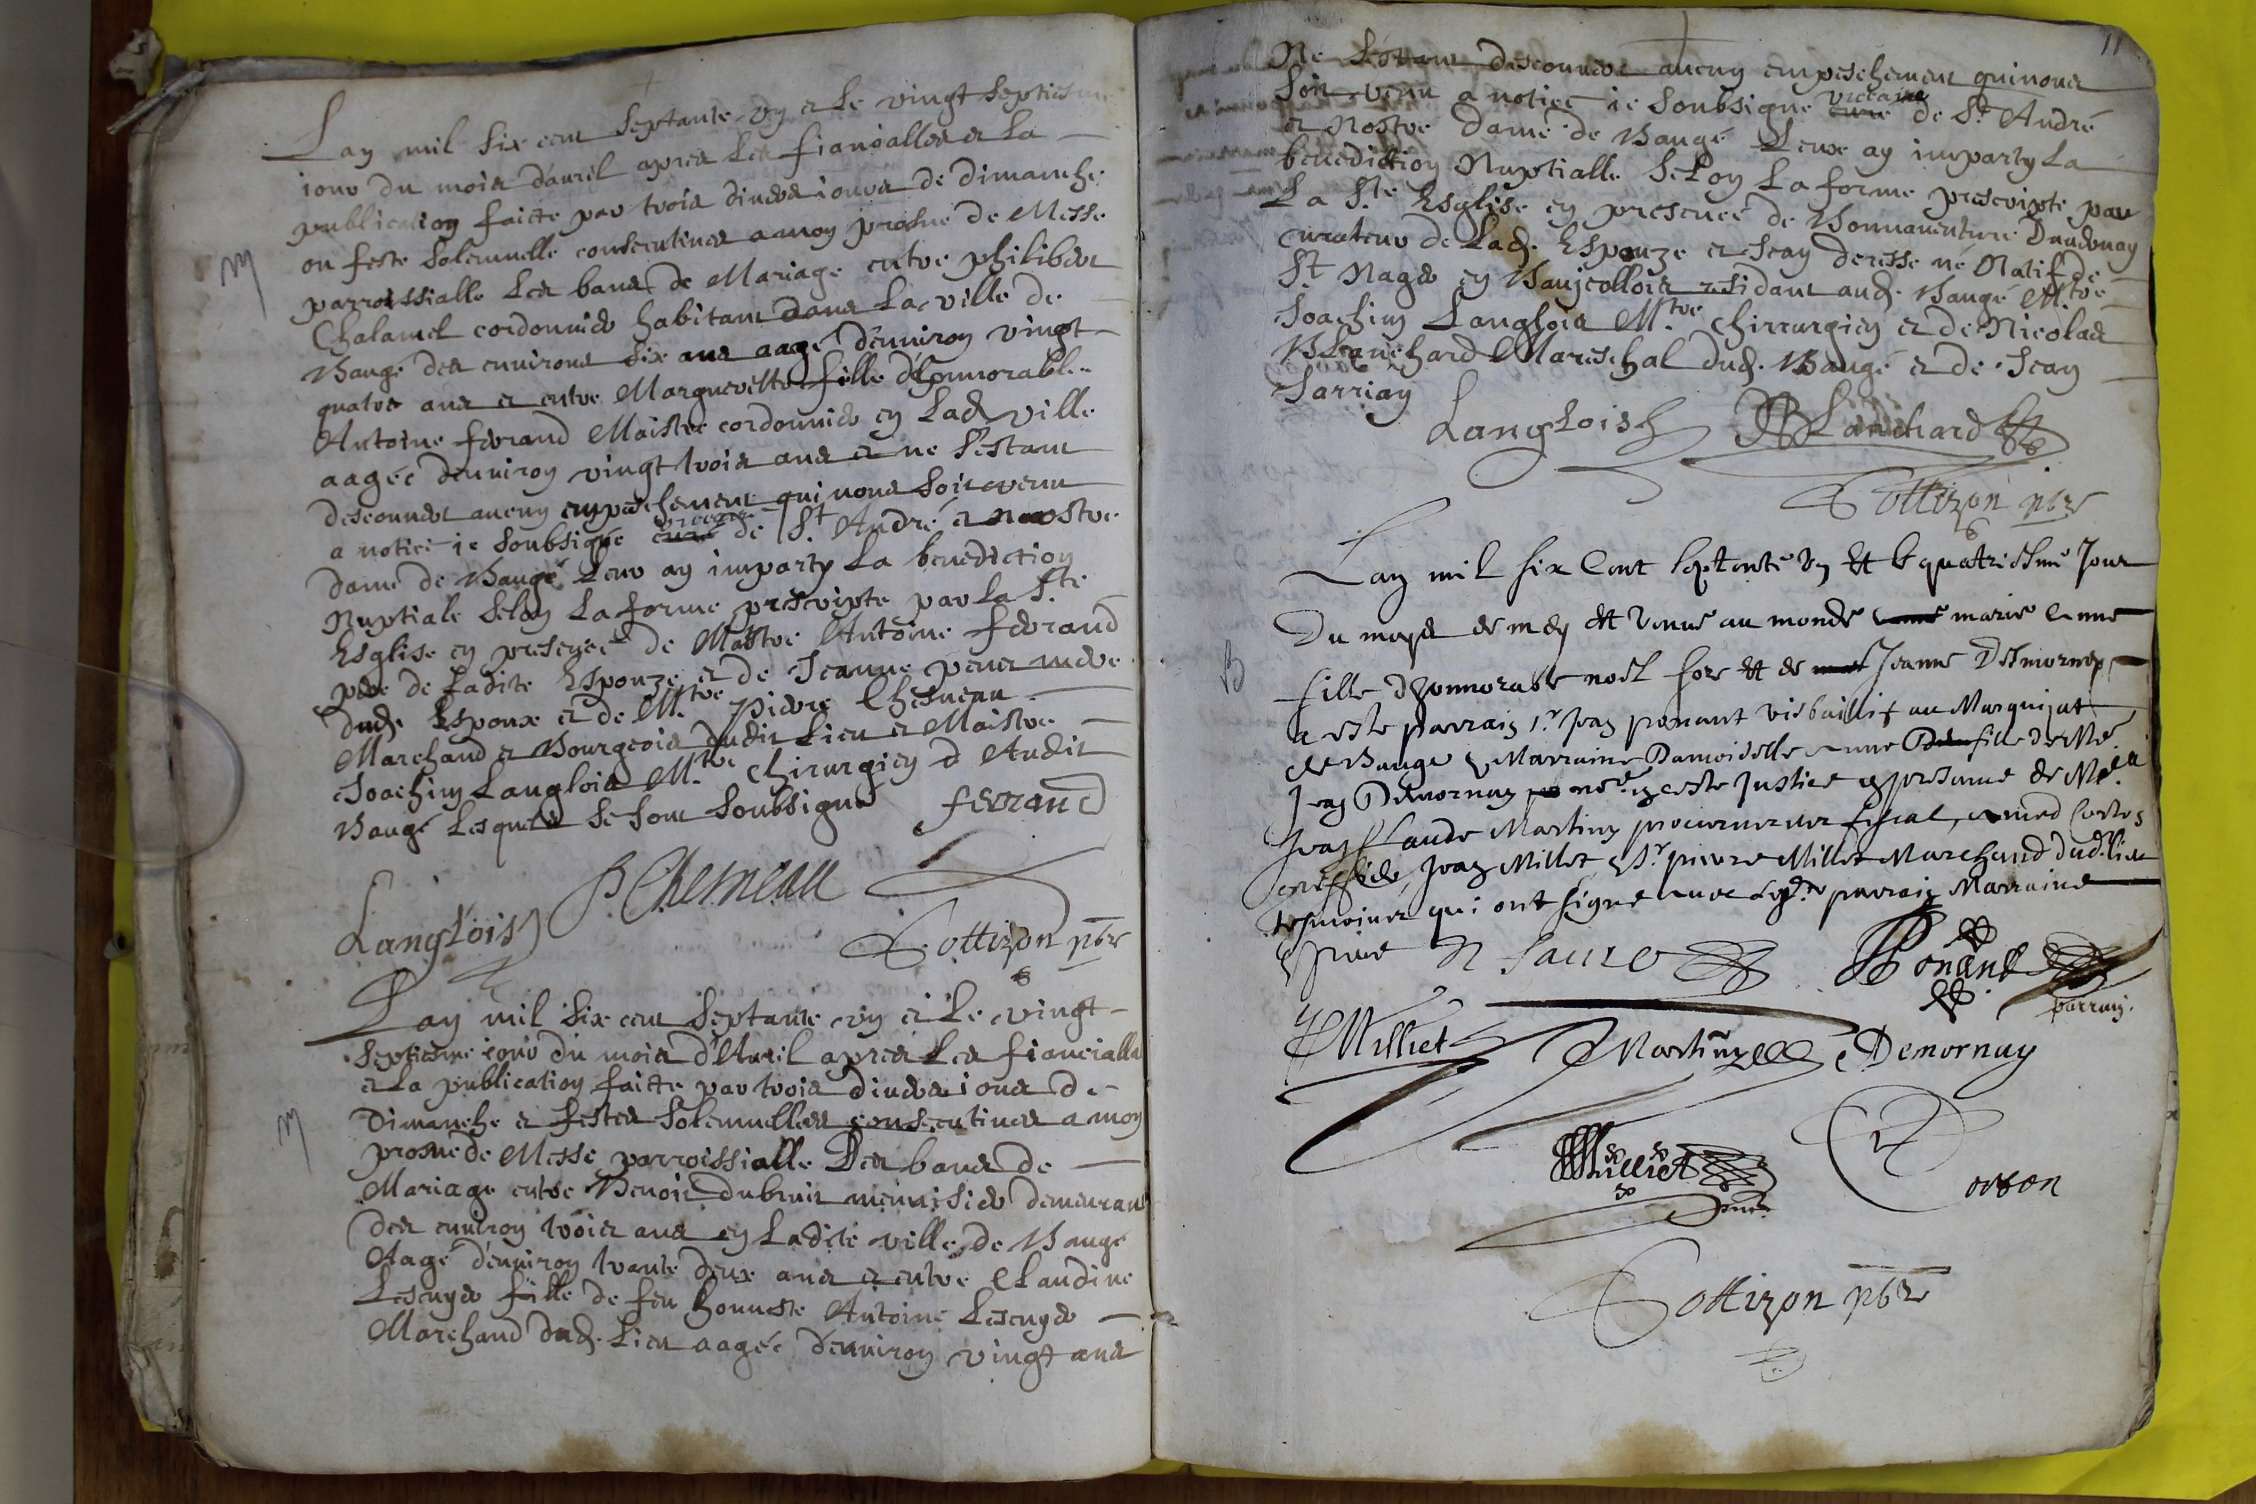 Lan mil six cent septante un et le vingt septiesme
jour du mois dauril apres les fiansalles et la
publication faicte par trois diuers jours de dimanche
ou feste solemnelle consecutiues a mon prosne de Messe
parroissialle les bans de Mariage entre philibert
M
Chalamel cordonnier habitant dans la ville de
Baugé des enuirons six ans aagé d'enuiron vingt
quatre ans et entre Marguerelte fille d'honnorable
Antoine ferrand Maistre cordonnier en lad ville
aagée denuiron vingt trois ans et ne s'estant
descouuert aucun empeschement qui nous soit venu
a notice ie soubsigné curé viccaire de St André et nostre
dame de Baugé leur ay imparty la benediction
Nuptiale selon la forme prescripte par la Ste
Esglise en presence de Mastre Antoine ferrand
pere de ladite Espouze et de Jeanne mere
dud. Espoux et de Mtre pierre Chesneau
Marchand et Bourgeois dudit lieu et Maistre
Joachim Langlois Mtre chirurgien d Audit
Baugé lesquels se sont soubsigné ferrand
P Chesneau
Langlois
Cottizon pbr
Lan mil six cent septante un et le vingt
septiesme jour du mois d'Auril apres les fiancialle
et la publication faitte par trois diuers jours de
Dimanche et festes solemnelles consecutiues a mon
M
prosne de Messe parroissialle Des bans de
Mariage entre Benoit dubruit menuisier demeurant
des enuiron trois ans en ladite ville de Baugé
Aagé d'enuiron trante deux ans et entre Claudine
Lescuyer fille de feu honneste Antoine Lescuyer
Marchand dud. lieu aagée d'enuiron vingt ans
11
Ne s'estant descouuert aucun empeschement qui nous
soit venu a notice ie soubsigné curé viccaire de St André
et Nostre Dame de Baugé Leur ay imparty la
benediction Nuptialle selon la forme prescripte par
la Ste Esglise en presence de Bonnauenture
curateur de lad. Espouze et Jean deresse né Natif de
St Nager en Baujollois residant aud. Baugé Mtre
Joachim Langlois Mtre Chirrurgien et de Nicolas
Blanchard Mareschal dud. Baugé et de Jean
Sarrian
Langlois NBlanchard
Cottizon pbr
Lan mil six cent septante un et le quatriesme Jour
Du moys de may est venue au monde marie anne
B
fille dhonnorable noel fore et de Jeanne Desmornay
a este parrain Sr Jean ponant visbaillif au Marquizat
de Bauge & Marraine Damoiselle anne fille de Me
Jean Demornay en ceste Justice en presance de
Jean Claude Martin procurerur fiscal, aimed Corton
greffier, Jean Milliet, Sr pierre Milliet Marchand dud. lieu
tesmoins qui ont signé auec lesd. parrain Marraine
& pere N faure Ponant
parrain.
Milliet Martin Demornay
Milliet Corton
Cottizon pbr